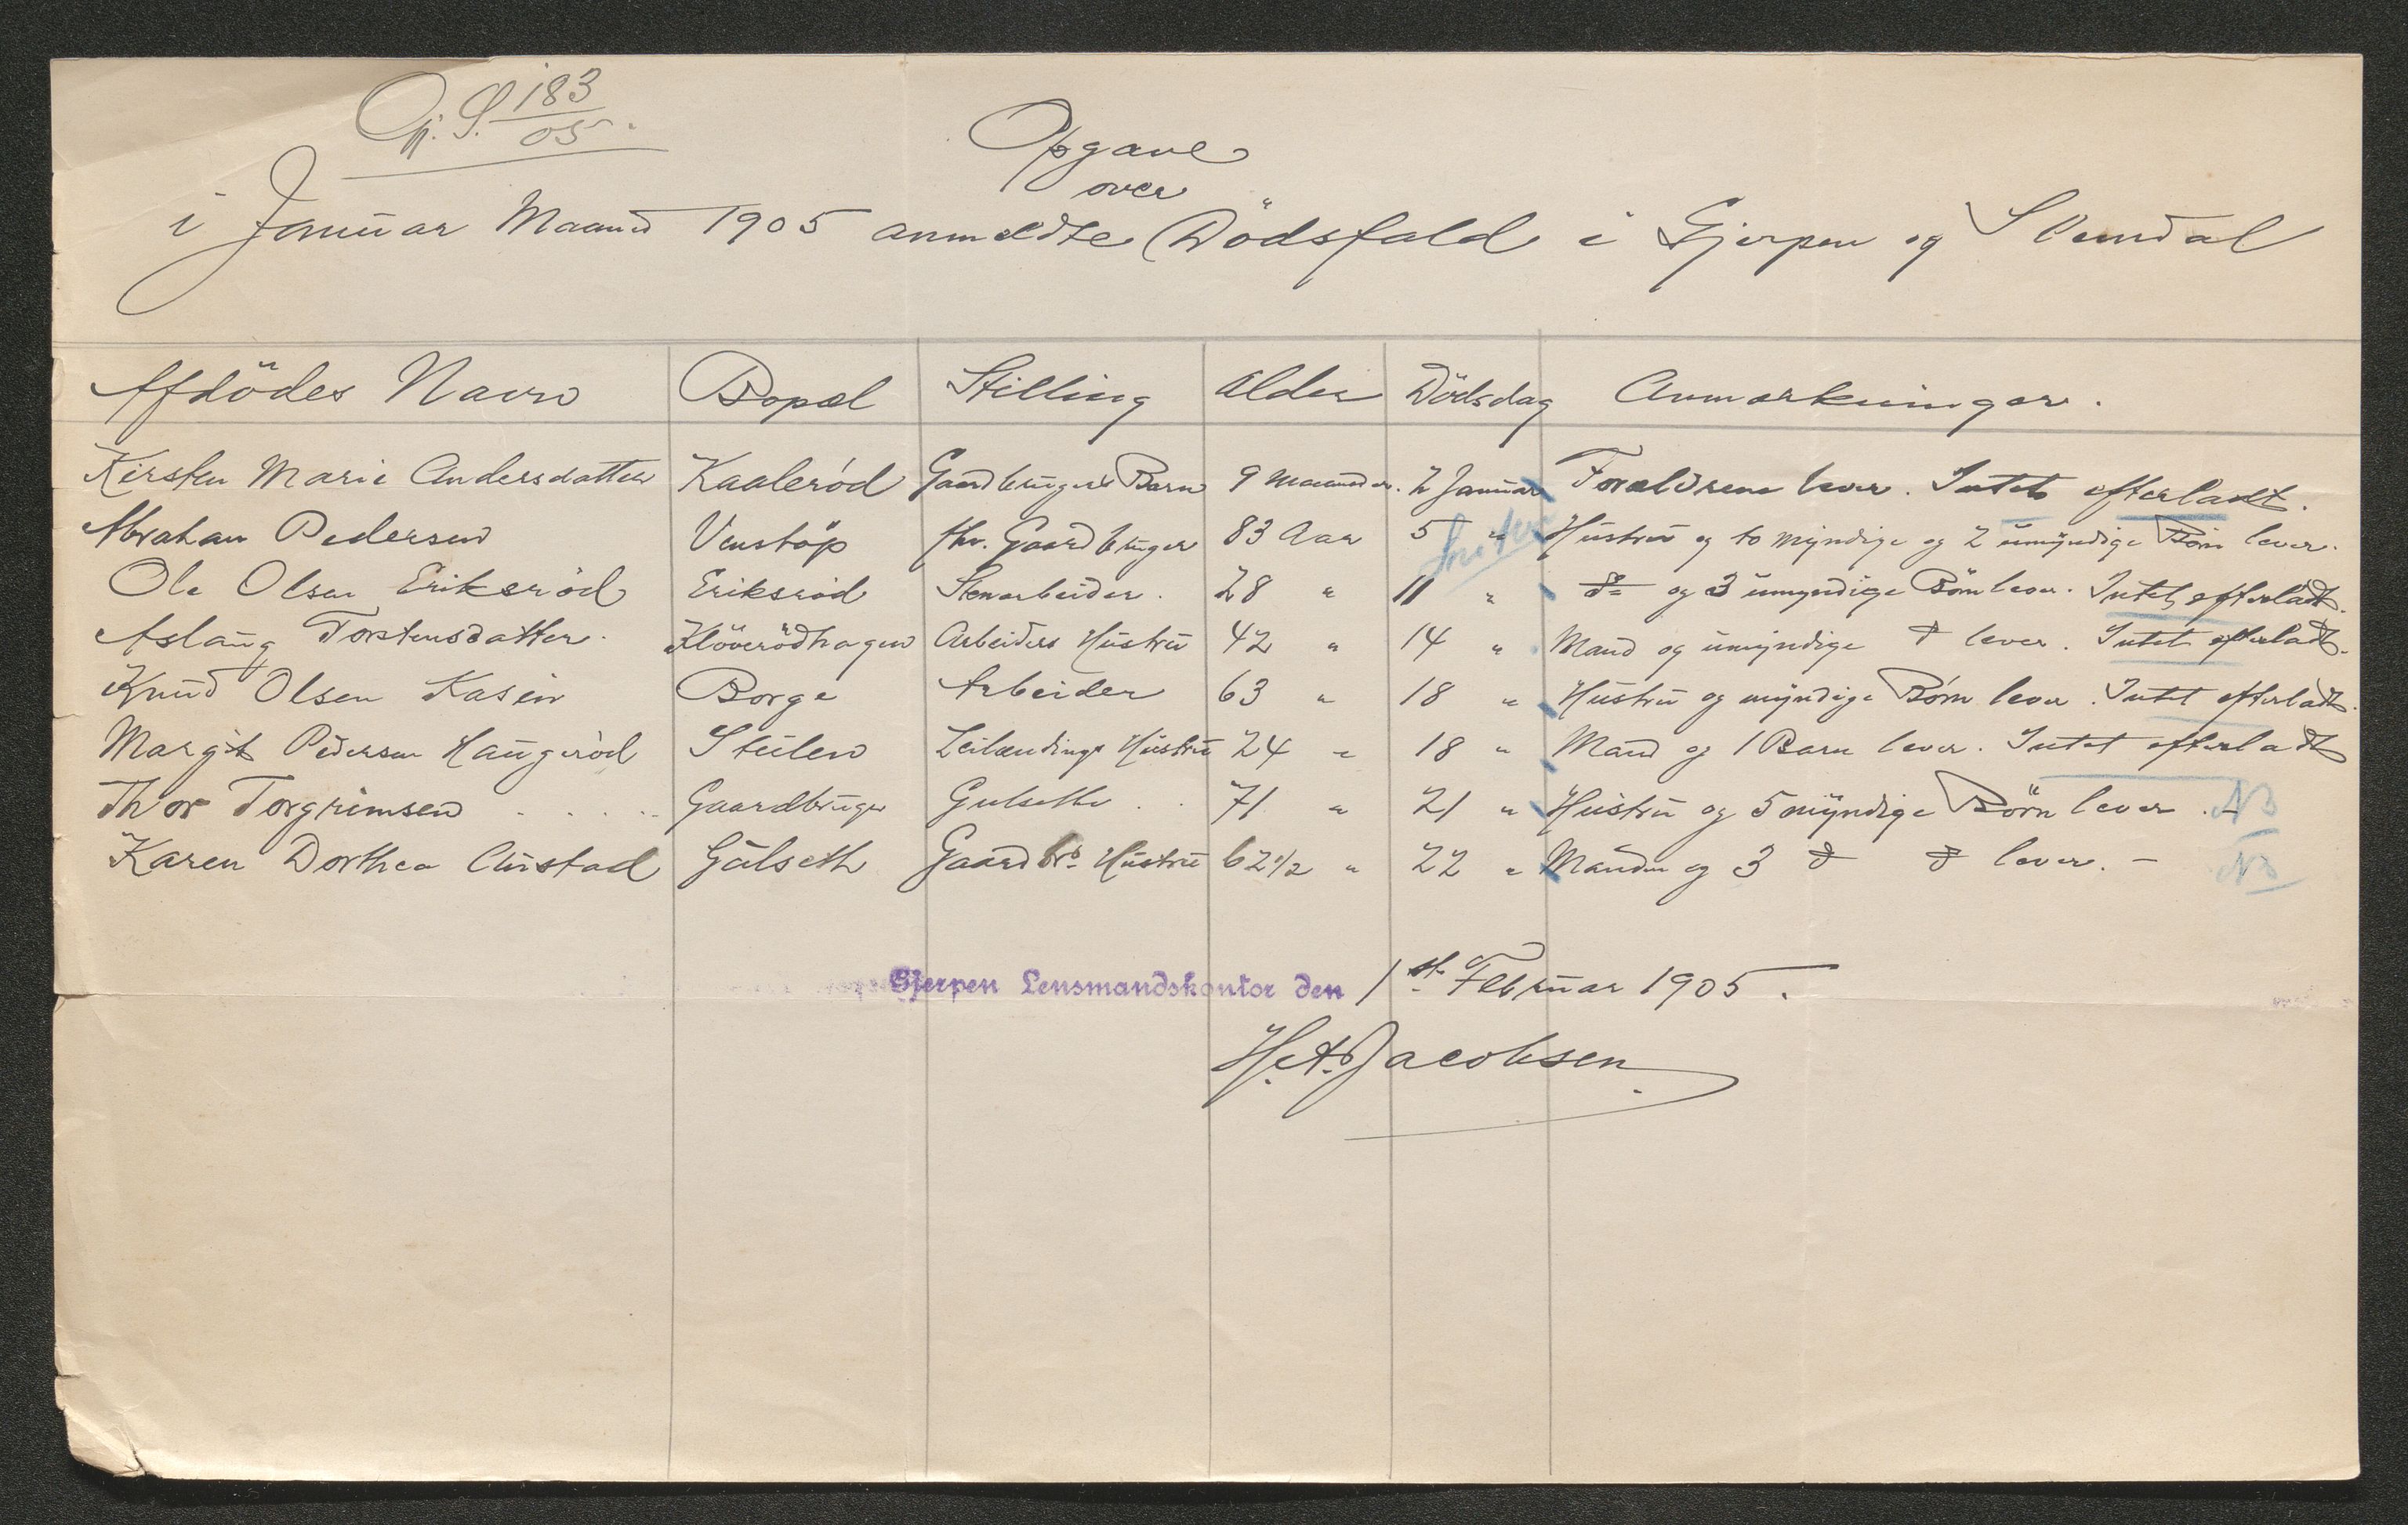 Gj. S. 183/05.
Opgave
over
i Januar Maaned 1905 anmeldte Dödsfald i Gjerpen og Slemdal
Afdödes Navn Bopæl Stilling Alder Dödsdag Anmærkninger.
Kirsten Marie Andersdatter Kaaleröd Gaardbrugers Barn 9 Maaneder. 2 Januar Forældrene lever. Intet efterladt.
Abraham Pedersen Venstöp fhv. Gaardbruger 83 Aar 5 " Hustru og to myndige og 2 umyndige Börn lever.
Ole Olsen Eriksröd Eriksröd Stenarbeider. 28 " 11 " do og 3 umyndige Börn lever. Intet efterladt.
Aslaug Torstensdatter. Klöverödhagen Arbeiders Hustru 42 " 14 " Mand og umyndige d lever. Intet efterladt.
Knud Olsen Kasin Borge Arbeider 63 " 18 " Hustru og myndige Börn lever. Intet efterladt.
Margit Pedersen Haugeröd Stulen Leilændings Hustru 24 " 18 " Mand og 1 Barn lever. Intet efterladt
Thor Torgrimsen . . . . Gaardbruger Gulseth . . 71 " 21 " Hustru og 5 myndige Börn lever. - NB
Karen Dorthea Austad Gulseth Gaardbrs Hustru 62 1/2 " 22 " Manden og 3 d d lever. - NB
Gjerpen Lensmandskontor den 1st Februar 1905.
H. A. Jacobsen